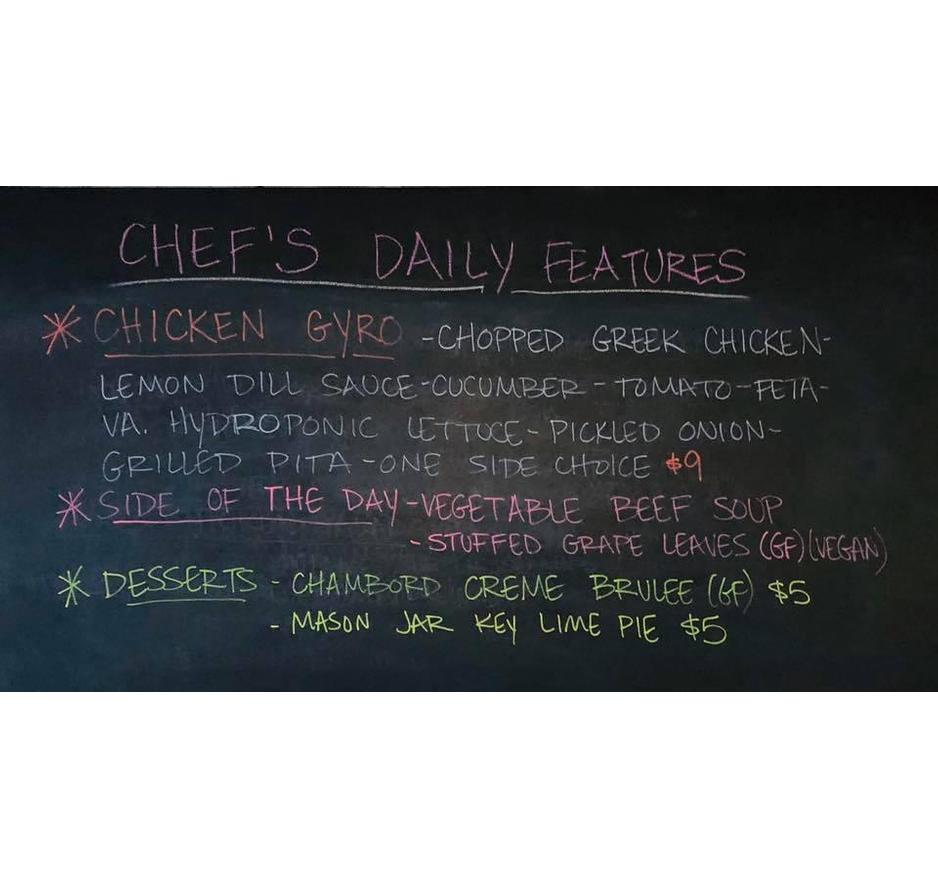 CHEF'S DAILY FEATURES
* CHICKEN GYRO - CHOPPED GREEK CHICKEN-
LEMON DILL SAUCE - CUCUMBER - TOMATO - FETA-
VA. HYDROPONIC LETTUCE - PICKLED ONION-
GRILLED PITA - ONE SIDE CHOICE $9
* SIDE OF THE DAY - VEGETABLE BEEF SOUP
- STUFFED GRAPE LEAVES (GF) (VEGAN)
* DESSERTS - CHAMBORD CREME BRULEE (GF) $5
- MASON JAR KEY LIME PIE $5